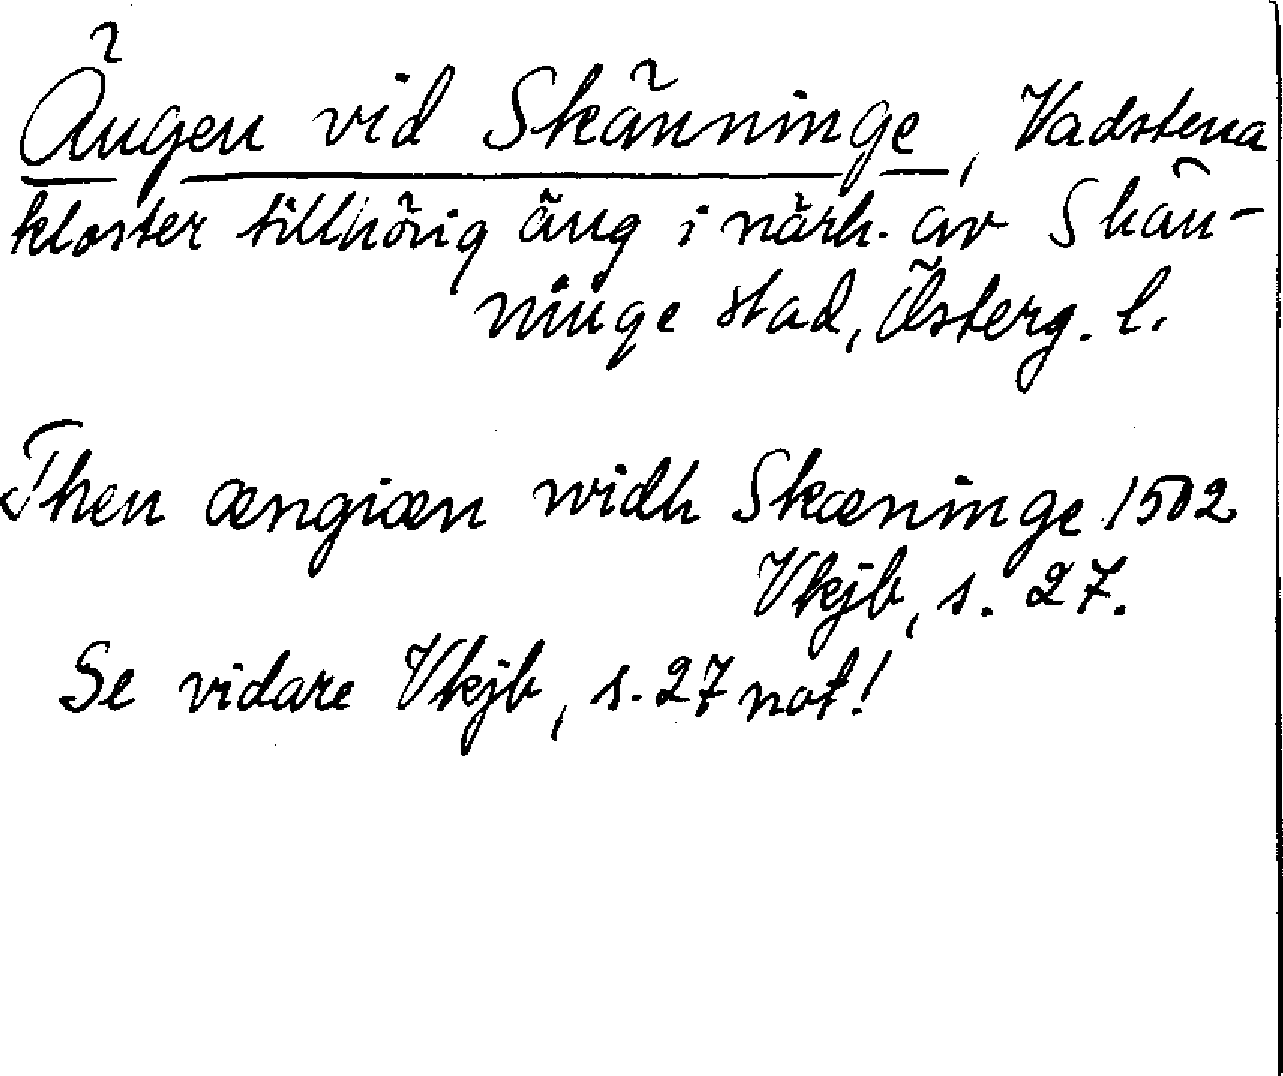 Ängen vid Skänninge, Vadstena
kloster tillhörig äng i närh. av Skän-
ninge stad, Österg. l.
Then ængiæn widh Skæninge 1502
Vkjb, s. 27.
Se vidare Vkjb, s. 27 not!